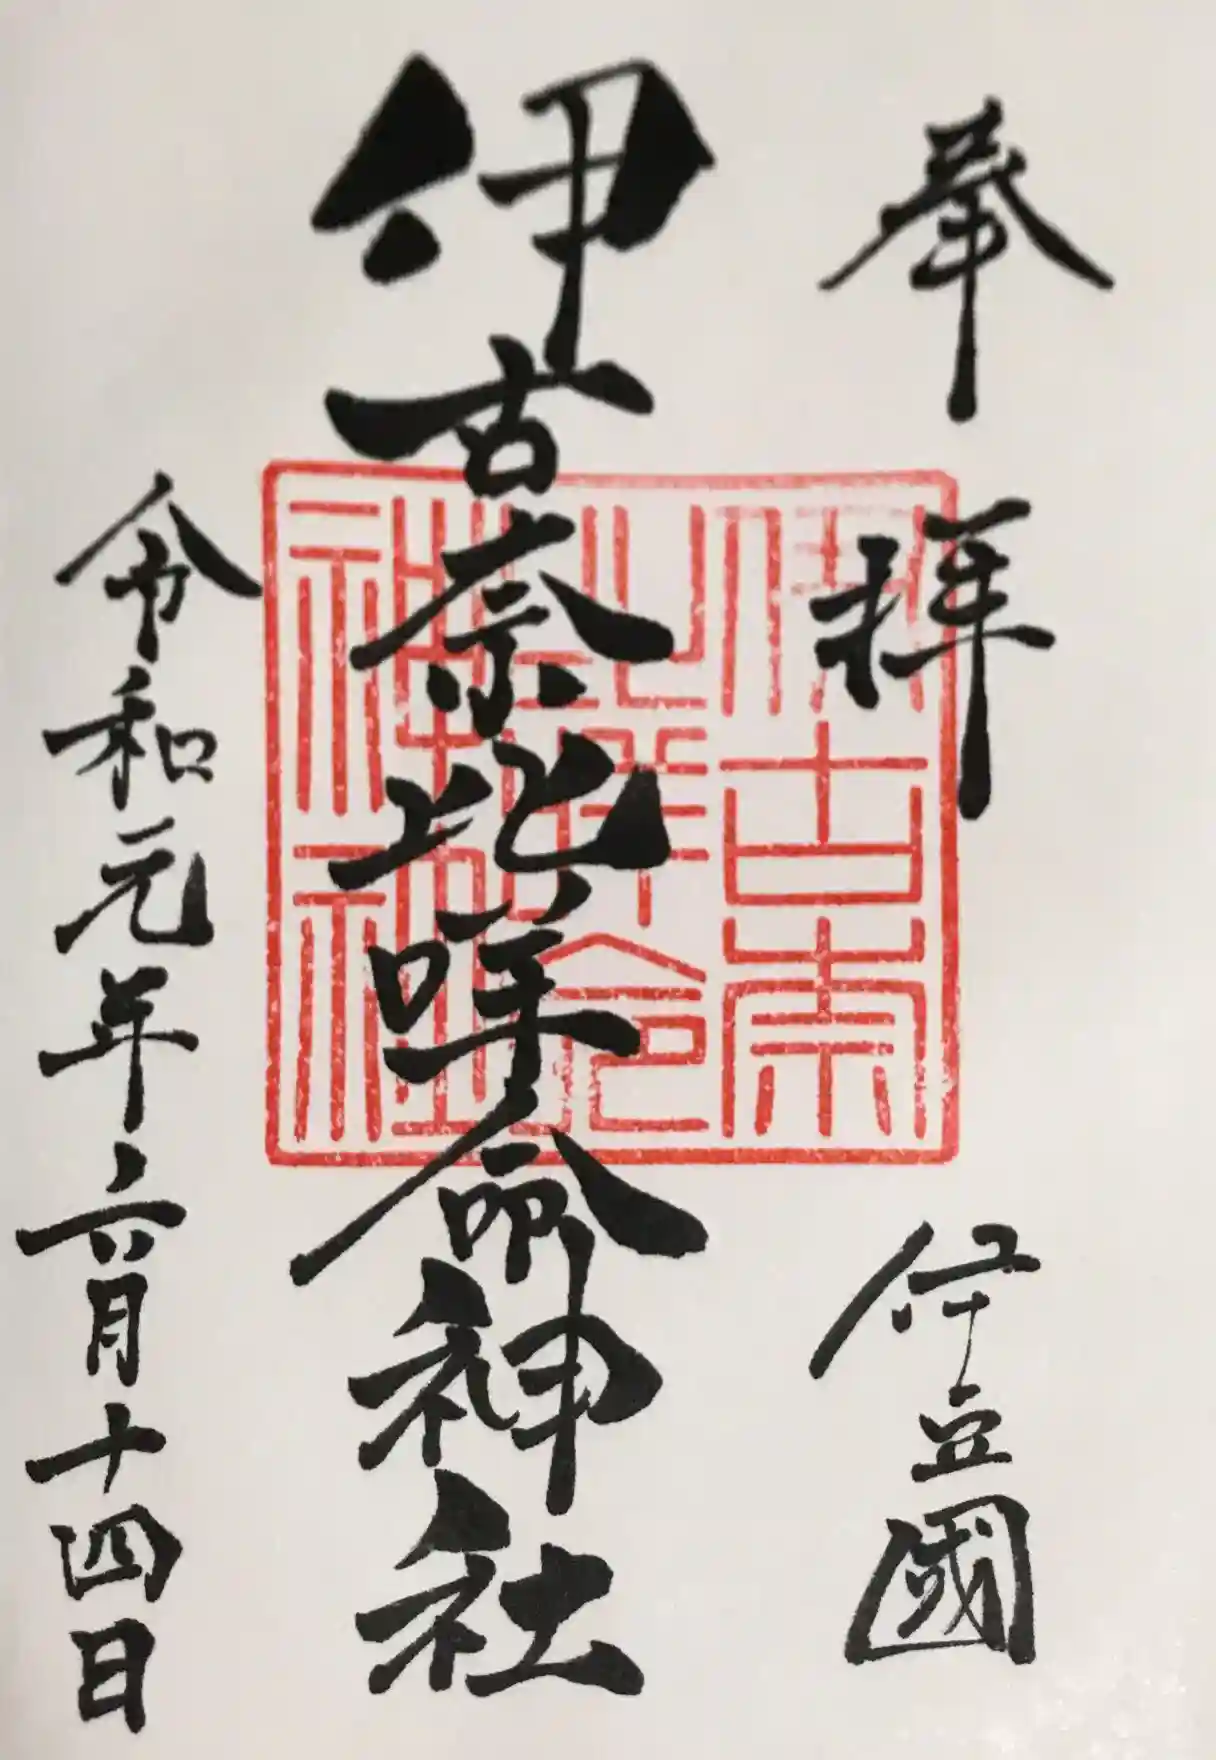 奉拝
伊豆國
伊古奈比咩命神社
伊古奈
比咩命
神社
令和元年六月十四日